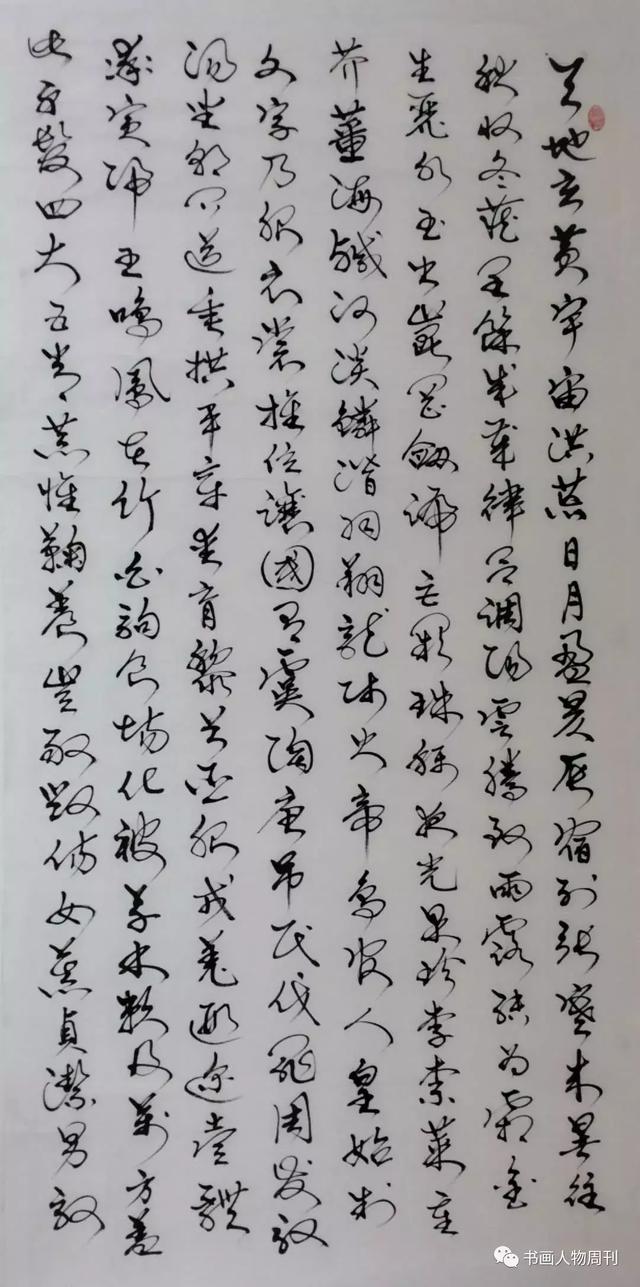 天地玄黄宇宙洪荒日月盈昃辰宿列張寒来暑往
秋收冬藏閏餘成歲律吕調陽雲騰致雨露結為霜金
生麗水玉出崑岡劔號巨闕珠稱夜光果珍李柰菜重
芥薑海鹹河淡鱗潛羽翔龍師火帝鳥官人皇始制
文字乃服衣裳推位讓國有虞陶唐吊民伐罪周發殷
湯坐朝问道垂拱平章愛育黎首臣服戎羌遐邇壹體
率賓歸王鳴鳳在竹白駒食場化被草木賴及萬方蓋
此身髮四大五常恭惟鞠養豈敢毀傷女慕貞潔男效
书画人物周刊